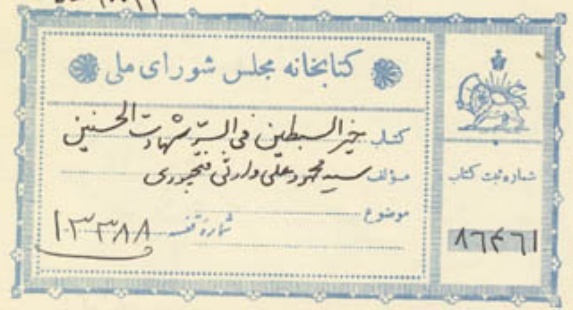 کتابخانه مجلس شورای ملی
کتاب خیر السبطین فی السر شهادت الحسنین
مؤلف سید محمود علی وارثی فتحپوری
موضوع
شماره قفسه ۱۳۳۸۸
شماره ثبت کتاب
۸۶۴۶۱